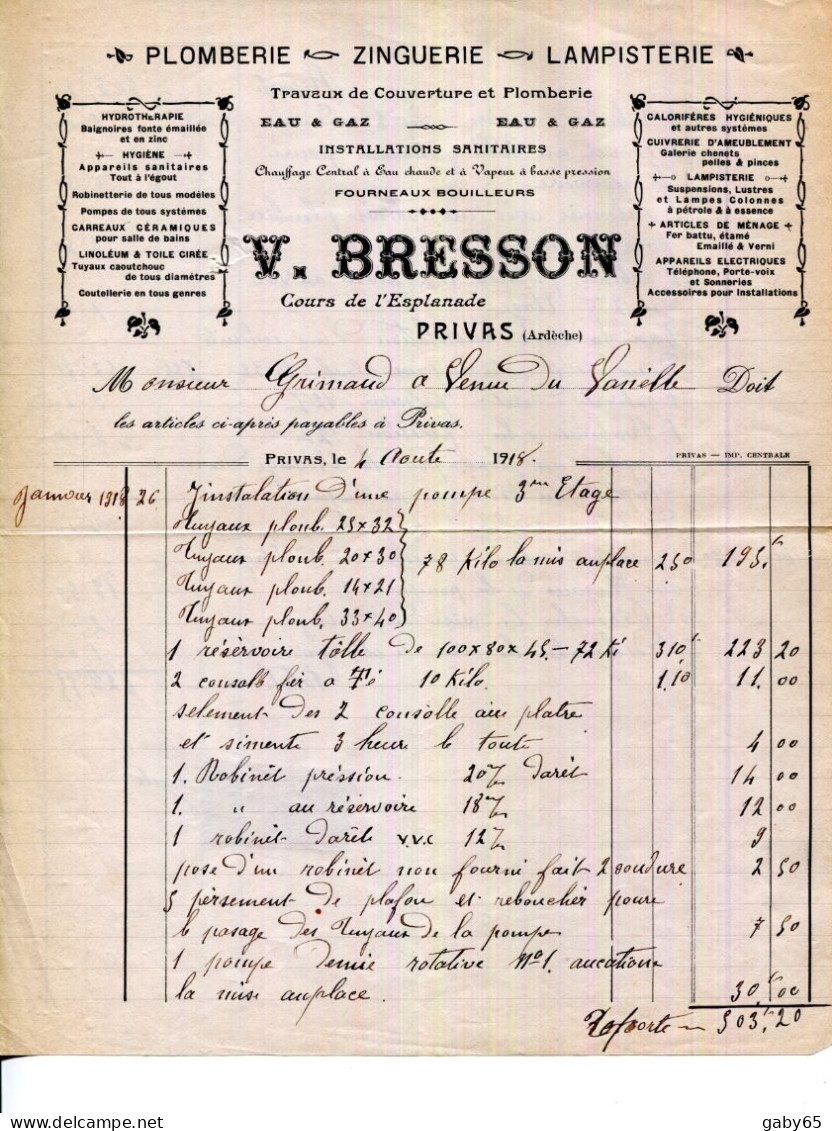 PLOMBERIE ZINGUERIE LAMPISTERIE
Travaux de Couverture et Plomberie
EAU & GAZ EAU & GAZ
INSTALLATIONS SANITAIRES
Chauffage Central à Eau chaude et à Vapeur à basse pression
FOURNEAUX BOUILLEURS
HYDROTHERAPIE
Baignoires fonte émaillée
et en zinc
HYGIÈNE
Appareils sanitaires
Tout à l'égout
Robinetterie de tous modèles
Pompes de tous systèmes
CARREAUX CÉRAMIQUES
pour salle de bains
LINOLÉUM & TOILE CIRÉE
Tuyaux caoutchouc
de tous diamètres
Coutellerie en tous genres
CALORIFÈRES HYGIÉNIQUES
et autres systèmes
CUIVRERIE D'AMEUBLEMENT
Galerie chenets
pelles & pinces
LAMPISTERIE
Suspensions, Lustres
et Lampes Colonnes
à pétrole & à essence
ARTICLES DE MÉNAGE
Fer battu, étamé
Emaillé & Verni
APPAREILS ELECTRIQUES
Téléphone, Porte-voix
et Sonneries
Accessoires pour Installations
V. BRESSON
Cours de l'Esplanade
PRIVAS (Ardèche)
Monsieur Grimaud a Doit
les articles ci-après payables à Privas.
PRIVAS, le 4 Aoute 1918.
PRIVAS — IMP. CENTRALE
Janvier 1918 26 Jinstalation d'une pompe 3me Etage
Tuyaux plonb. 25x32
Tuyaux plonb. 20x30 78 Kilo la mis anplace 250 195.f
Tuyaux plonb. 14x21
Tuyaux plonb. 33x40
1 résèrvoire tôlle de 100x80x45.- 72 Ki 310f 223 20
2 consoll fèr a Té 10 Kilo. 1.10 11.00
selement des 2 consolle aux platre
et simente 3 heure le toute 4 00
1. Robinèt préssion. 20 m/m darèt 14 00
1. " au résèrvoire 18 m/m 12 00
1 robinèt darèt v.v.c 12 m/m 9
pose d'un robinèt non fourni fait 2 soudure 2 50
5 pèrsement de plafon et reboucher poure
le pasage des Tuyaux de la pompe 7 50
1 pompe demie rotative No1.
la mise anplace. 30.f 00
Raporte 503.f20
gaby65